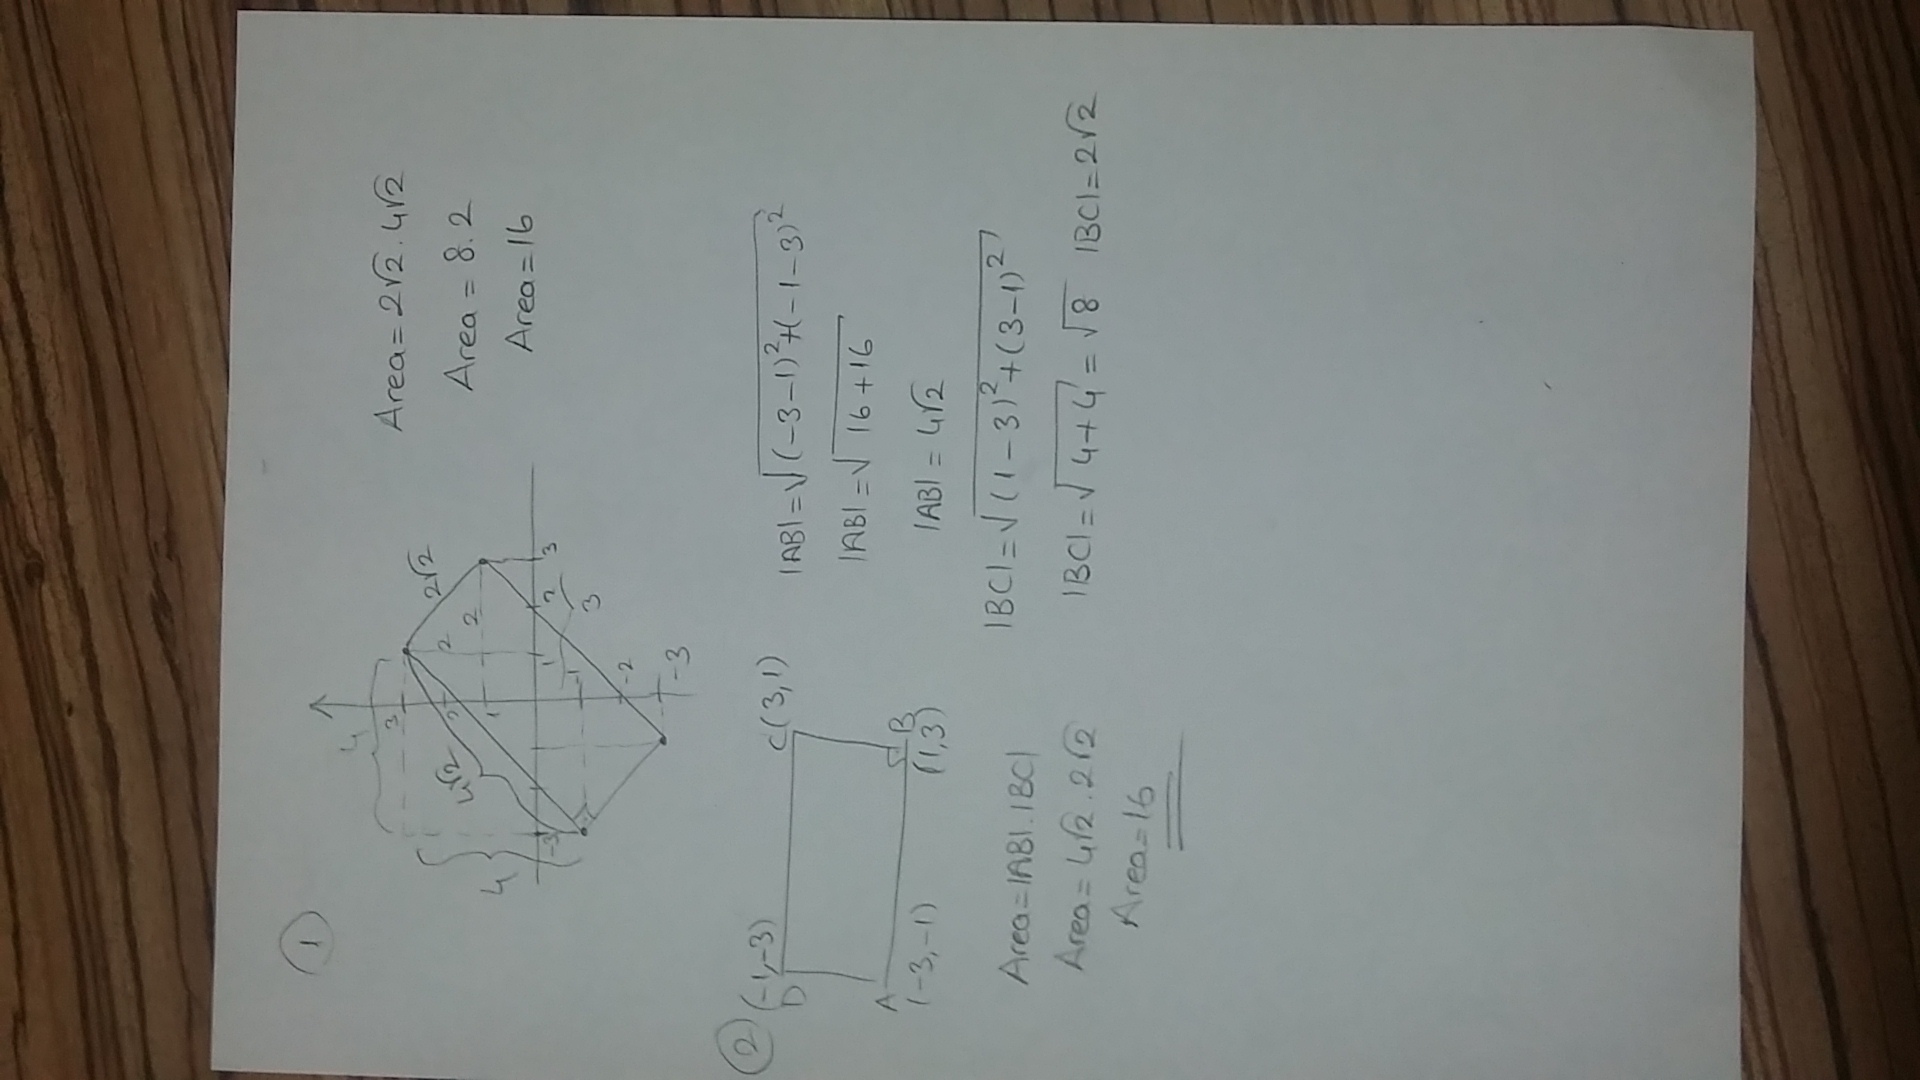 1
4
4√2
4
3
2
1
2√2
2
2
-3
1
2
3
3
-1
-2
-3
Area = 2√2 . 4√2
Area = 8.2
Area = 16
2
D (-1,-3)
C (3,1)
A (-3,-1)
B (1,3)
|AB| = √(-3-1)²+(-1-3)²
|AB| = √16+16
|AB| = 4√2
|BC| = √(1-3)²+(3-1)²
|BC| = √4+4 = √8 |BC| = 2√2
Area = |AB|.|BC|
Area = 4√2 . 2√2
Area = 16